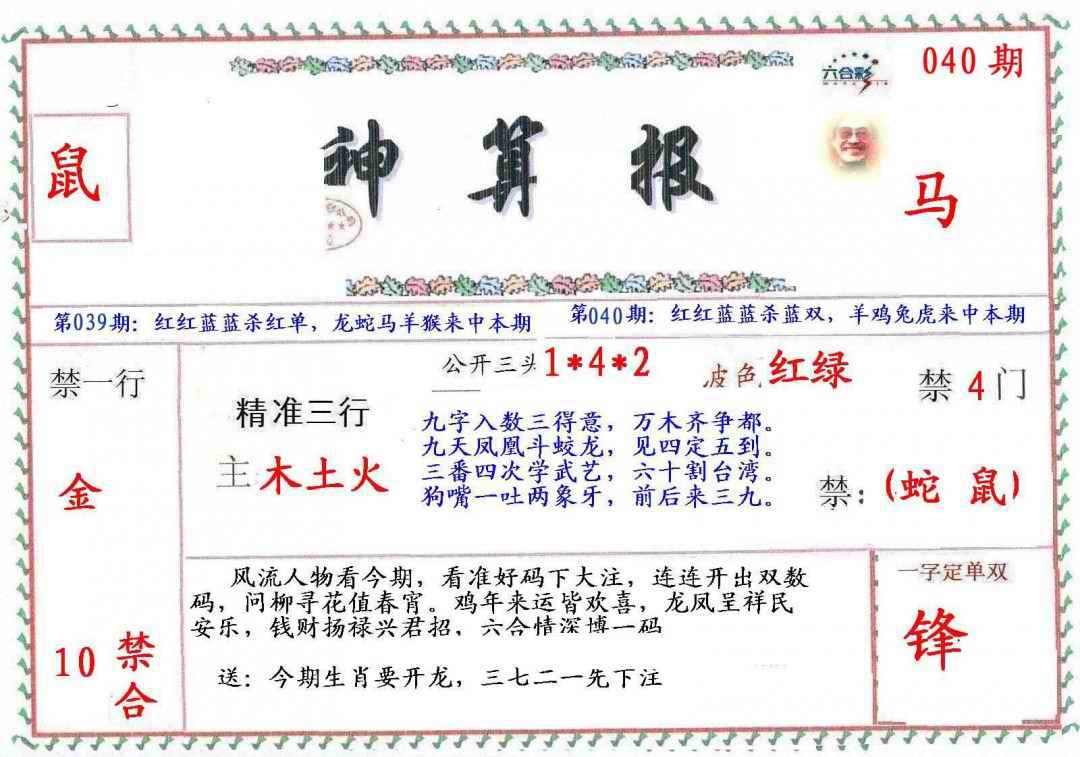 六合彩
040 期
鼠
神算报
马
第039期：红红蓝蓝杀红单，龙蛇马羊猴来中本期
第040期：红红蓝蓝杀蓝双，羊鸡兔虎来中本期
禁一行
金
10 禁合
公开三头 1*4*2
波色 红绿
精准三行
主 木土火
九字入数三得意，万木齐争都。
九天凤凰斗蛟龙，见四定五到。
三番四次学武艺，六十割台湾。
狗嘴一吐两象牙，前后来三九。
禁 4 门
禁：（蛇 鼠）
风流人物看今期，看准好码下大注，连连开出双数
码，问柳寻花值春宵。鸡年来运皆欢喜，龙凤呈祥民
安乐，钱财扬禄兴君招，六合情深博一码
送：今期生肖要开龙，三七二一先下注
一字定单双
锋